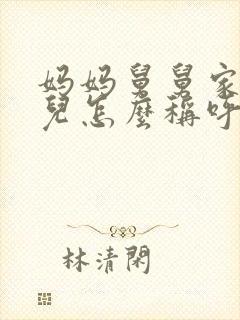 妈妈舅舅家
兒怎麼稱呼
林清閑